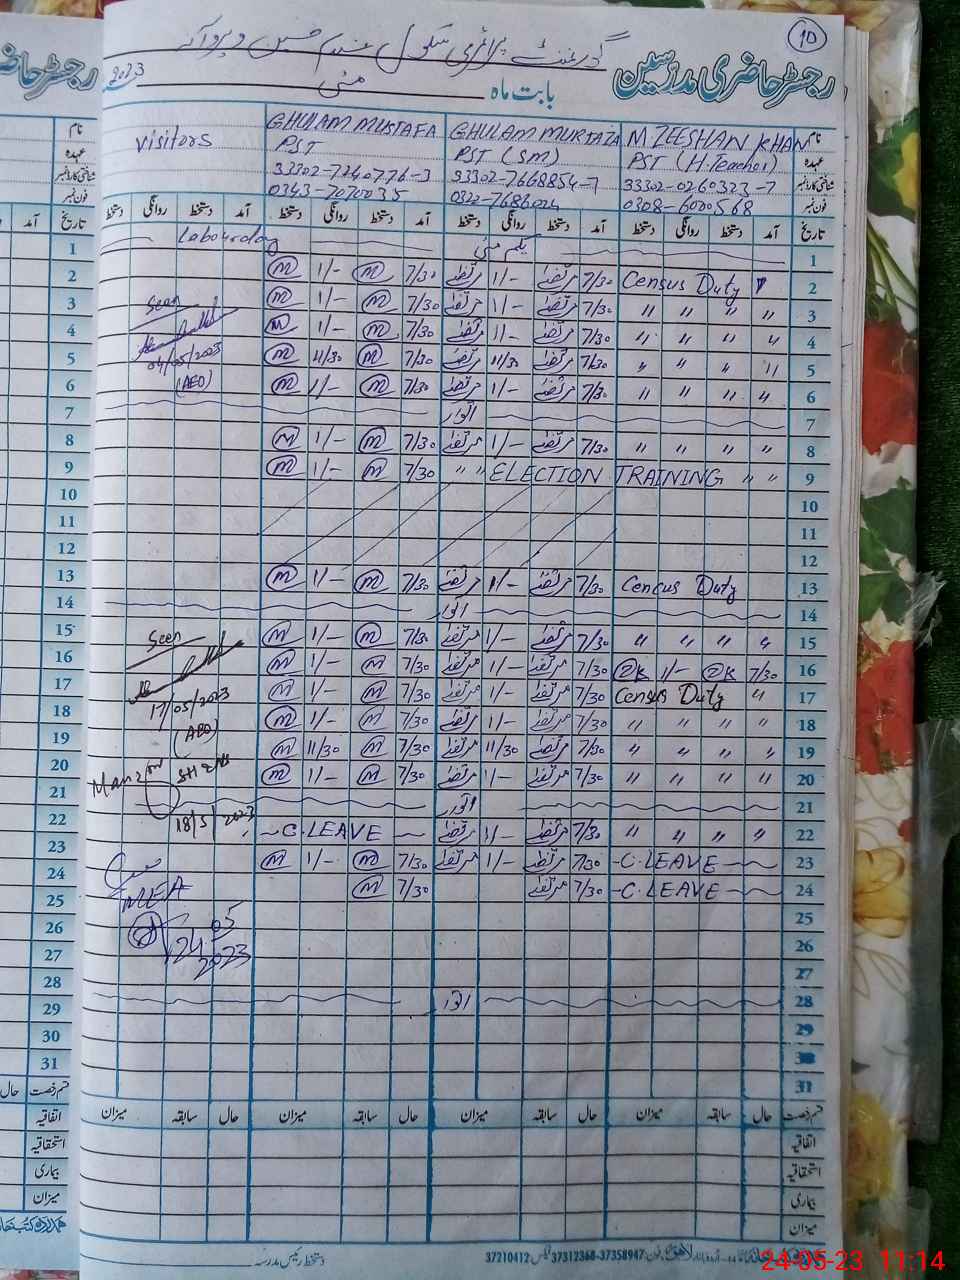 10
رجسٹر حاضری مدرسین
گورنمنٹ پرائمری سکول
بابت ماہ مئی 2023
نام M ZEESHAN KHAN GHULAM MURTAZA GHULAM MUSTAFA Visitors
عہدہ PST (H.Teacher) PST (SM) PST
شناختی کارڈ نمبر 33302-0260323-7 33302-7668854-7 33302-7240776-3
فون نمبر 0308-6000568 0322-7686024 0343-7070035
تاریخ آمد دستخط روانگی دستخط آمد دستخط روانگی دستخط آمد دستخط روانگی دستخط آمد دستخط روانگی دستخط
1 یکم مئی Labourday
2 Census Duty " 7/30 مرتضیٰ 1/- مرتضیٰ 7/30 m 1/- m
3 " " " " 7/30 مرتضیٰ 1/- مرتضیٰ 7/30 m 1/- m Seen
4 " " " " 7/30 مرتضیٰ 1/- مرتضیٰ 7/30 m 1/- m
5 " " " " 7/30 مرتضیٰ 11/30 مرتضیٰ 7/30 m 11/30 m 04/05/2023
6 " " " " 7/30 مرتضیٰ 1/- مرتضیٰ 7/30 m 1/- m (AEO)
7 اتوار
8 " " " " 7/30 مرتضیٰ 1/- مرتضیٰ 7/30 m 1/- m
9 " " ELECTION TRAINING " " 7/30 m 1/- m
10
11
12
13 Census Duty 7/30 مرتضیٰ 1/- مرتضیٰ 7/30 m 1/- m
14 اتوار
15 " " " " 7/30 مرتضیٰ 1/- مرتضیٰ 7/30 m 1/- m Seen
16 7/30 ZK 1/- ZK 7/30 مرتضیٰ 1/- مرتضیٰ 7/30 m 1/- m
17 Census Duty " 7/30 مرتضیٰ 1/- مرتضیٰ 7/30 m 1/- m 17/05/2023
18 " " " " 7/30 مرتضیٰ 1/- مرتضیٰ 7/30 m 1/- m (AEO)
19 " " " " 7/30 مرتضیٰ 11/30 مرتضیٰ 7/30 m 11/30 m
20 " " " " 7/30 مرتضیٰ 1/- مرتضیٰ 7/30 m 1/- m
21 اتوار
22 " " " " 7/30 مرتضیٰ 1/- مرتضیٰ C.LEAVE 18/5/2023
23 C.LEAVE 7/30 مرتضیٰ 1/- مرتضیٰ 7/30 m 1/- m
24 C.LEAVE 7/30 مرتضیٰ 7/30 m MEA
25
26 24.05
27 2023
28 اتوار
29
30
31
قسم رخصت حال سابقہ میزان حال سابقہ میزان حال سابقہ میزان حال سابقہ میزان
اتفاقیہ
استحقاقیہ
بیماری
میزان
37210412 37312368-37358947 دستخط رئیس مدرسہ
رجسٹر حاضری
نام
عہدہ
شناختی کارڈ نمبر
فون نمبر
تاریخ آمد
1
2
3
4
5
6
7
8
9
10
11
12
13
14
15
16
17
18
19
20
21
22
23
24
25
26
27
28
29
30
31
قسم رخصت حال
اتفاقیہ
استحقاقیہ
بیماری
میزان
24-05-23 11:14